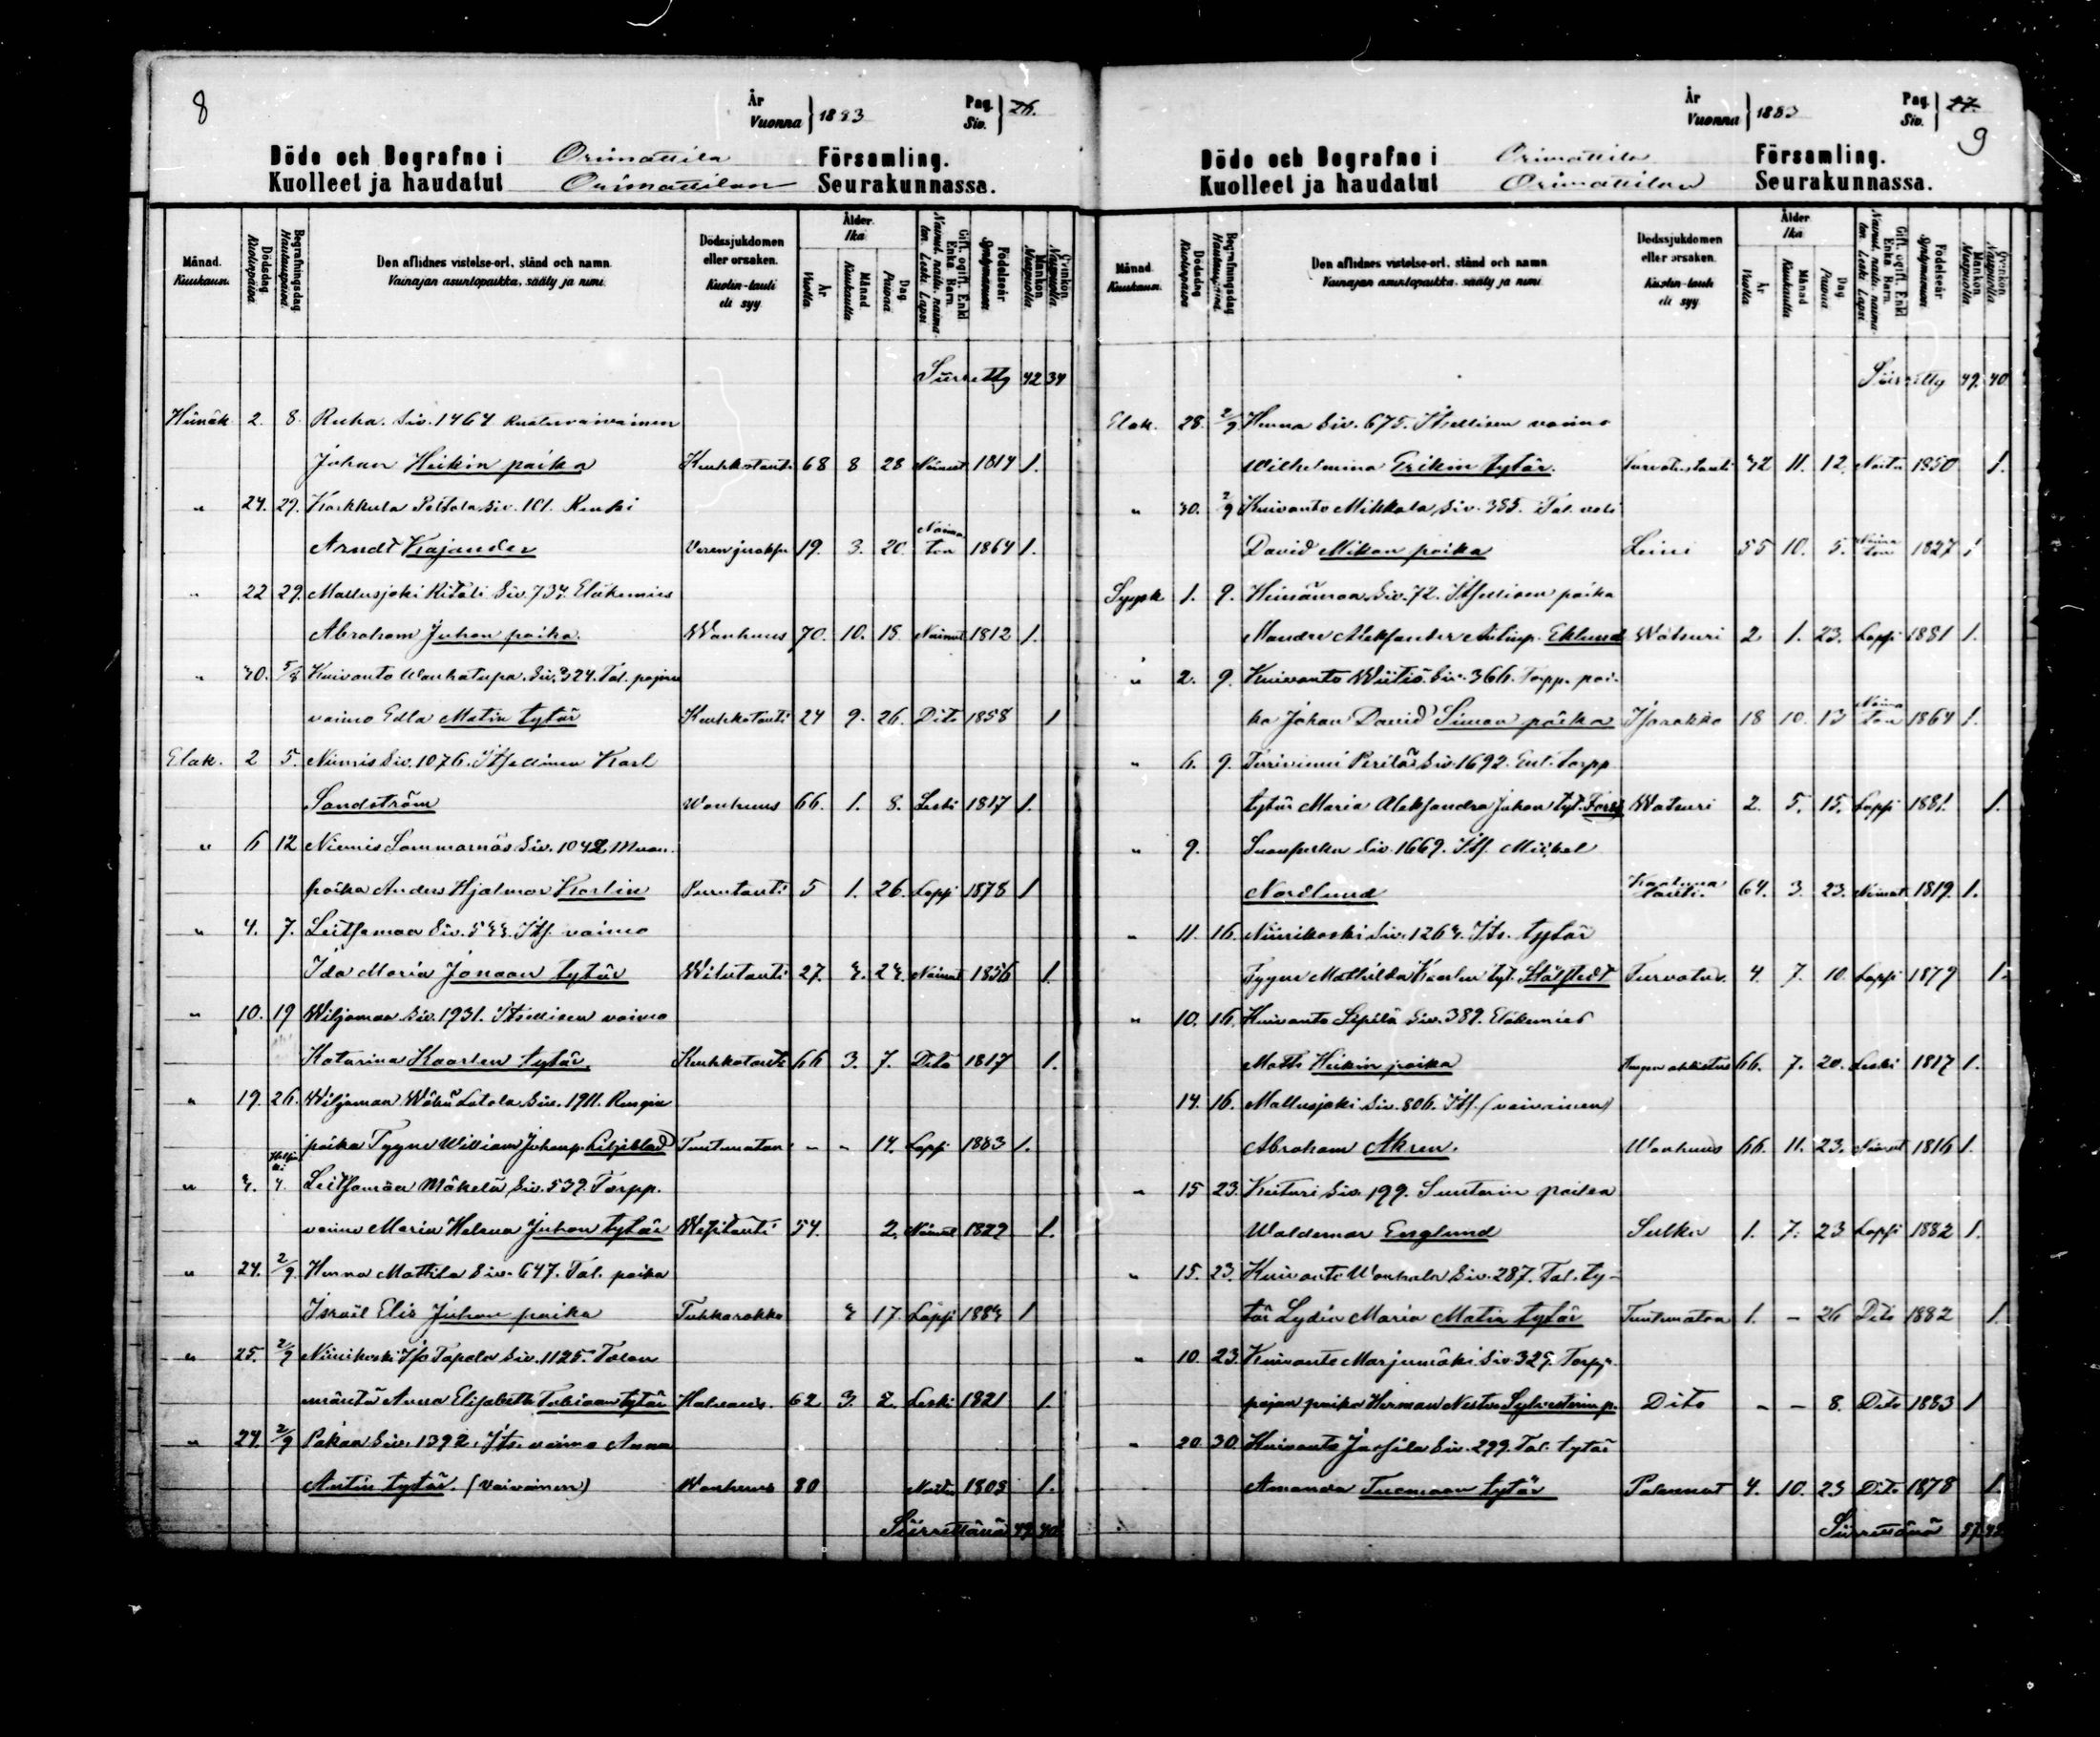 8
År
Vuonna 1883
Pag.
Siv. 26.
Döde och Begrafne i Orimattila Församling.
Kuolleet ja haudatut Orimattilan Seurakunnassa.
Månad. Kuukaun.
Dödsdag Kuolinpäivä
Begrafningsdag Hautauspäivä
Den aflidnes vistelse-ort, stånd och namn.
Vainajan asuntopaikka, sääty ja nimi.
Dödssjukdomen eller orsaken.
Kuolin-tauti eli syy
Ålder. Ikä
År Vuotta
Månad Kuukautta
Dag Päivää
Gift, ogift, Enkl. Enka. Barn. Nainut, naitu, naimaton. Leski. Lapsi
Födelseår Syntymävuosi
Mankön Miespuolia
Qvinkön Naispuolia
Siirretty 42 34
Heinäk. 2. 8. Ruha. Siv. 1464 Ruotuvaivainen
Johan Heikin poika Keuhkotauti 68 8 28 Nainut 1814 1.
" 24. 29. Karkkula Peltola Siv. 101. Renki
Arndt Kajander 19. 3. 20. Naimaton 1864 1.
" 22 29. Mallusjoki Siv. 734. Eläkemies
Abraham Juhon poika. Wanhuus 70. 10. 15 Nainut 1812 1.
" 30. 5/8 Kuivanto Wanhatupa. Siv. 324. Tal. pojan
vaimo Edla Matin tytär Keuhkotauti 24 9. 26. Dito 1858 1
Elok. 2 5. Niemis Siv. 1076. Itsellinen Karl
Sandström Wanhuus 66. 1. 8. Leski 1817 1.
" 6 12 Niemis Sommarnäs Siv. 1042
poika Anders Hjalmar Karlin 5 1. 26. Lapsi 1878 1
" 4. 7. Leitsamaa Siv. 533. Its. vaimo
Ida Maria Jonaan tytär 27. 3. 23. Nainut 1856 1.
" 10. 19 Wiljamaa Siv. 1931. Itsellisen vaimo
Katarina Kaarlen tytär. Keuhkotauti 66 3. 7. Dito 1817 1.
" 19. 26. Wiljamaa Wähä Latola Siv. 1911. Rengin
poika Tyyne William Juhanp. Liljeblad Tuntematon - - 14. Lapsi 1883 1.
" 3. Leitsamaa Mäkelä Siv. 539. Torpp.
vaimo Maria Helena Juhon tytär Wesitauti 54. 2. Nainut 1829 1.
" 24. 2/9. Henna Mattila Siv. 647. Tal. poika
Israel Elis Juhon poika Tuhkarokko 3 17. Lapsi 1883 1
" 25. 2/9 Niinikoski Iso Tapola Siv. 1125. Talon
emäntä Anna Elisabeth Tobiaan tytär Halvaus. 62 3. 2. Leski 1821 1.
" 24. 2/9 Pakaa Siv. 1392. Its. vaimo Anna
Antin tytär. (vaivainen) Wanhuus 80 1803 1.
Siirrettävä 49. 40.
År
Vuonna 1883
Pag.
Siv. 27.
9
Döde och Begrafne i Orimattila Församling.
Kuolleet ja haudatut Orimattilan Seurakunnassa.
Månad. Kuukaun.
Dödsdag Kuolinpäivä
Begrafningsdag Hautauspäivä
Den aflidnes vistelse-ort, stånd och namn.
Vainajan asuntopaikka, sääty ja nimi
Dödssjukdomen eller orsaken.
Kuolin-tauti eli syy
Ålder Ikä
År Vuotta
Månad Kuukautta
Dag Päivää
Gift, ogift, Enkl. Enka. Barn. Nainut, naitu, naimaton. Leski. Lapsi
Födelseår Syntymävuosi
Mankön Miespuolia
Qvinkön Naispuolia
Siirretty 49. 40.
Elok. 28. 2/9. Henna Siv. 675. Itsellisen vaimo
Wilhelmina Erikin tytär. 32 11. 12. Naitu 1850 1.
" 30. 2/9 Kuivanto Mikkola Siv. 355. Tal. veli
David Mikon poika 55 10. 5. Naimaton 1827 1
Syysk. 1. 9. Heinämaa Siv. 72. Itsellisen poika
Mandre Aleksander Antinp. Eklund Wätsuri 2 1. 23. Lapsi 1881 1.
" 2. 9. Kuivanto Wiitiö. Siv. 366. Torpp. poi-
ka Johan David Simon poika Isorokko 18 10. 13 Naimaton 1864 1.
" 6. 9. Terriniemi Perilä Siv. 1692. Ent. torpp
tytär Maria Aleksandra Juhon tyt. Fors Watsuri 2. 5. 15. Lapsi 1881. 1.
" 9. Luhtikylä Siv. 1669. Its. Mikkel
Nordlund 64. 3. 23. Nainut 1819. 1.
" 11. 16. Niinikoski Siv. 1263. Its. tytär
Tyyne Mathilda Kaarlen tyt. Stålstedt 4. 7. 10. Lapsi 1879 1.
" 10. 16. Kuivanto Sepilä Siv. 389. Eläkemies
Matts Heikin poika 66. 7. 20. Leski 1817 1.
14. 16. Mallusjoki Siv. 806. Its. (vaivainen)
Abraham Akren. Wanhuus 66. 11. 23. Nainut 1816 1.
" 15 23. Keituri Siv. 199. Suutarin poika
Waldemar Englund 1. 7. 23 Lapsi 1882 1.
" 15. 23. Kuivanto Wanhala Siv. 287. Tal. ty-
tär Lydia Maria Matin tytär Tuntematon 1. - 26 Dito 1882 1.
" 10. 23. Kuivanto Marjumäki Siv. 325. Torpp.
pojan poika Herman Nestor Sylvesterin p. Dito - - 8. Dito 1883 1
" 20 30. Kuivanto Jussila Siv. 299. Tal. tytär
Amanda Tuomaan tytär Palannut 4. 10. 23 Dito 1878 1.
Siirrettävä 57.